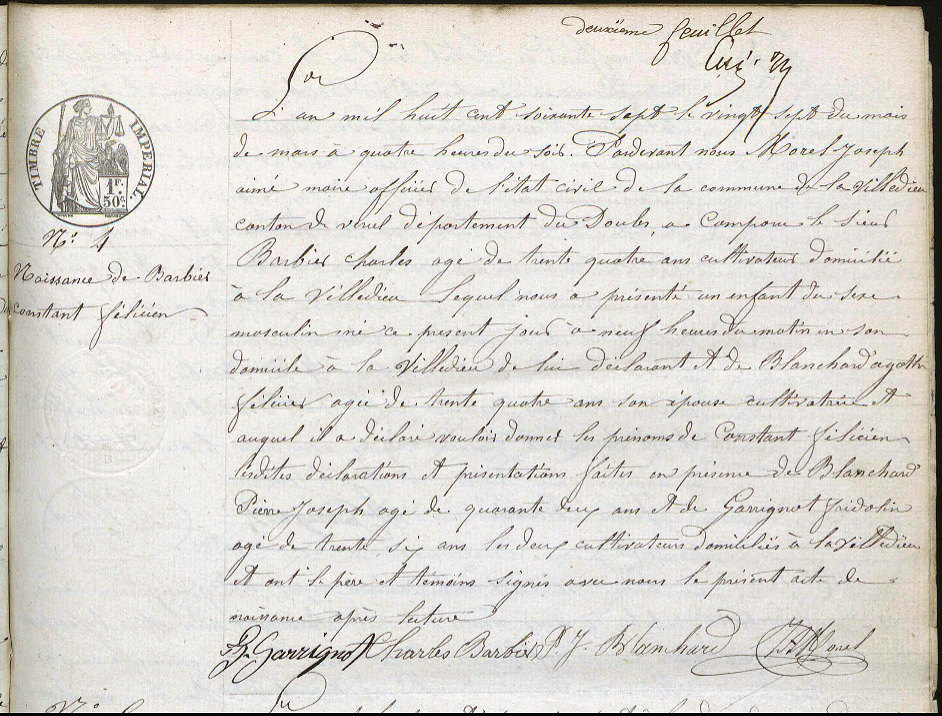 deuxième feuillet
TIMBRE IMPERIAL.
1F. 50c.
L'an mil huit cent soixante sept le vingt sept du mois
de mars a quatre heures du soir. Pardevant nous Morel Joseph
aimé maire officier de l'état civil de la commune de la villedieu
canton de vercel département du Doubs, a comparu le sieur
N° 4
Naissance de Barbier
constant félicien
Barbier charles agé de trente quatre ans cultivateur domicilié
à la villedieu lequel nous a présenté un enfant du sexe
masculin né ce present jour a neuf heures du matin en son
domicile à la villedieu de lui déclarant et de Blanchard agathe
agée de trente quatre ans son épouse cultivatrice et
auquel il a déclaré vouloir donner les prénoms de Constant félicien
lesdites déclarations et présentations faites en présence de Blanchard
Pierre Joseph agé de quarante deux ans et de Garrignot fridolin
agé de trente six ans les deux cultivateurs domiciliés à la villedieu
et ont le père et témoins signés avec nous le présent acte de
naissance après lecture
Garrignot Charles Barbier P. J. Blanchard Morel